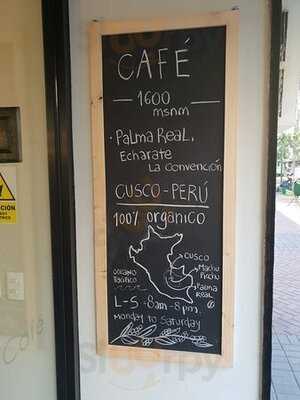 CAFÉ
1600
msnm
• PALMA REAL,
ECHARATE
LA CONVENCIÓN
CUSCO - PERÚ
100% orgánico
CUSCO
Machu
Picchu
OCEANO
Pacífico
PALMA
REAL
L-S = 8am-8pm.
MONDAY to SATURDAY